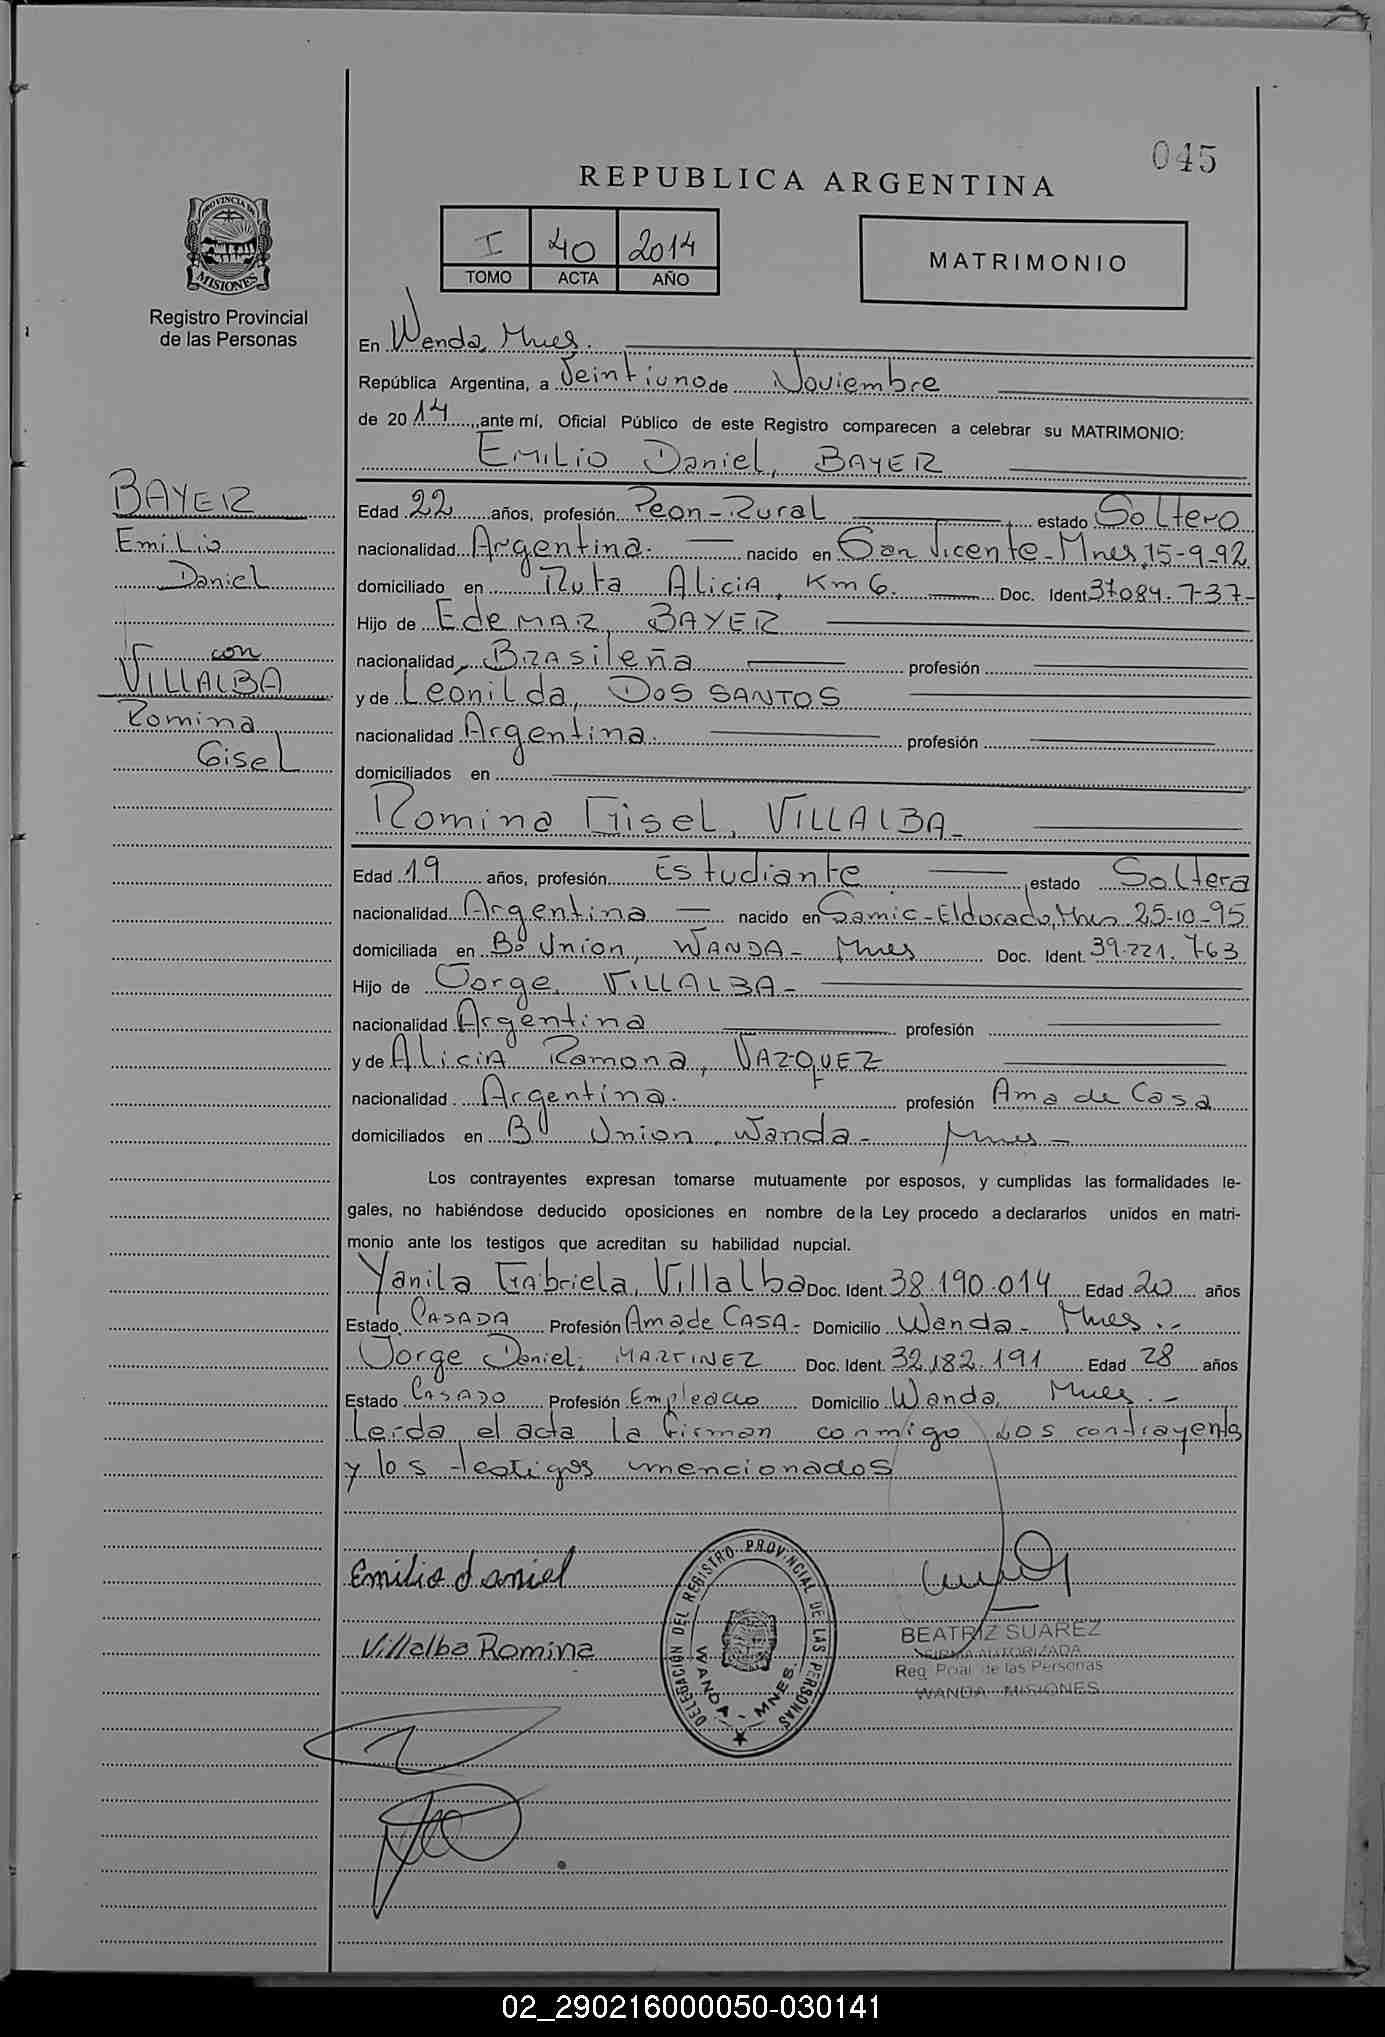 045
REPUBLICA ARGENTINA
I 40 2014
TOMO ACTA AÑO
MATRIMONIO
PROVINCIA DE
MISIONES
Registro Provincial
de las Personas
En Wanda, Mnes.
República Argentina, a Veintiuno de Noviembre
de 2014, ante mí, Oficial Público de este Registro comparecen a celebrar su MATRIMONIO:
EMILIO Daniel, BAYER
BAYER
Emilio
Daniel
con
VILLALBA
Romina
Gisel
Edad 22 años, profesión Peon-Rural estado Soltero
nacionalidad Argentina. nacido en San Vicente-Mnes, 15-9-92
domiciliado en Ruta Alicia, Km 6. Doc. Ident 37.084.737-
Hijo de EdeMAR, BAYER
nacionalidad, BRASileña profesión
y de Leonilda, Dos SANTOS
nacionalidad Argentina. profesión
domiciliados en
Romina Gisel, VILLALBA-
Edad 19 años, profesión Estudiante estado Soltera
nacionalidad Argentina nacido en Samic-Eldorado, Mnes 25-10-95
domiciliada en Bº Union, WANDA- Mnes Doc. Ident. 39.221.763
Hijo de Jorge, VILLALBA-
nacionalidad Argentina profesión
y de Alicia Ramona, VAZQUEZ
nacionalidad Argentina. profesión Ama de Casa
domiciliados en Bº Union, Wanda- Mnes-
Los contrayentes expresan tomarse mutuamente por esposos, y cumplidas las formalidades le-
gales, no habiéndose deducido oposiciones en nombre de la Ley procedo a declararlos unidos en matri-
monio ante los testigos que acreditan su habilidad nupcial.
Yanila Gabriela, Villalba Doc. Ident. 38.190.014 Edad 20 años
Estado CASADA Profesión Ama de CASA- Domicilio Wanda- Mnes.-
Jorge Daniel, MARTINEZ Doc. Ident. 32.182.191 Edad 28 años
Estado CASADO Profesión Empleado Domicilio Wanda, Mnes.-
Leida el acta la firman conmigo los contrayentes
y los testigos mencionados
Emilio daniel
Villalba Romina
DELEGACIÓN DEL REGISTRO PROVINCIAL DE LAS PERSONAS
WANDA - MNES.
BEATRIZ SUAREZ
FIRMA AUTORIZADA
Reg. Pcial. de las Personas
WANDA - MISIONES
02_290216000050-030141